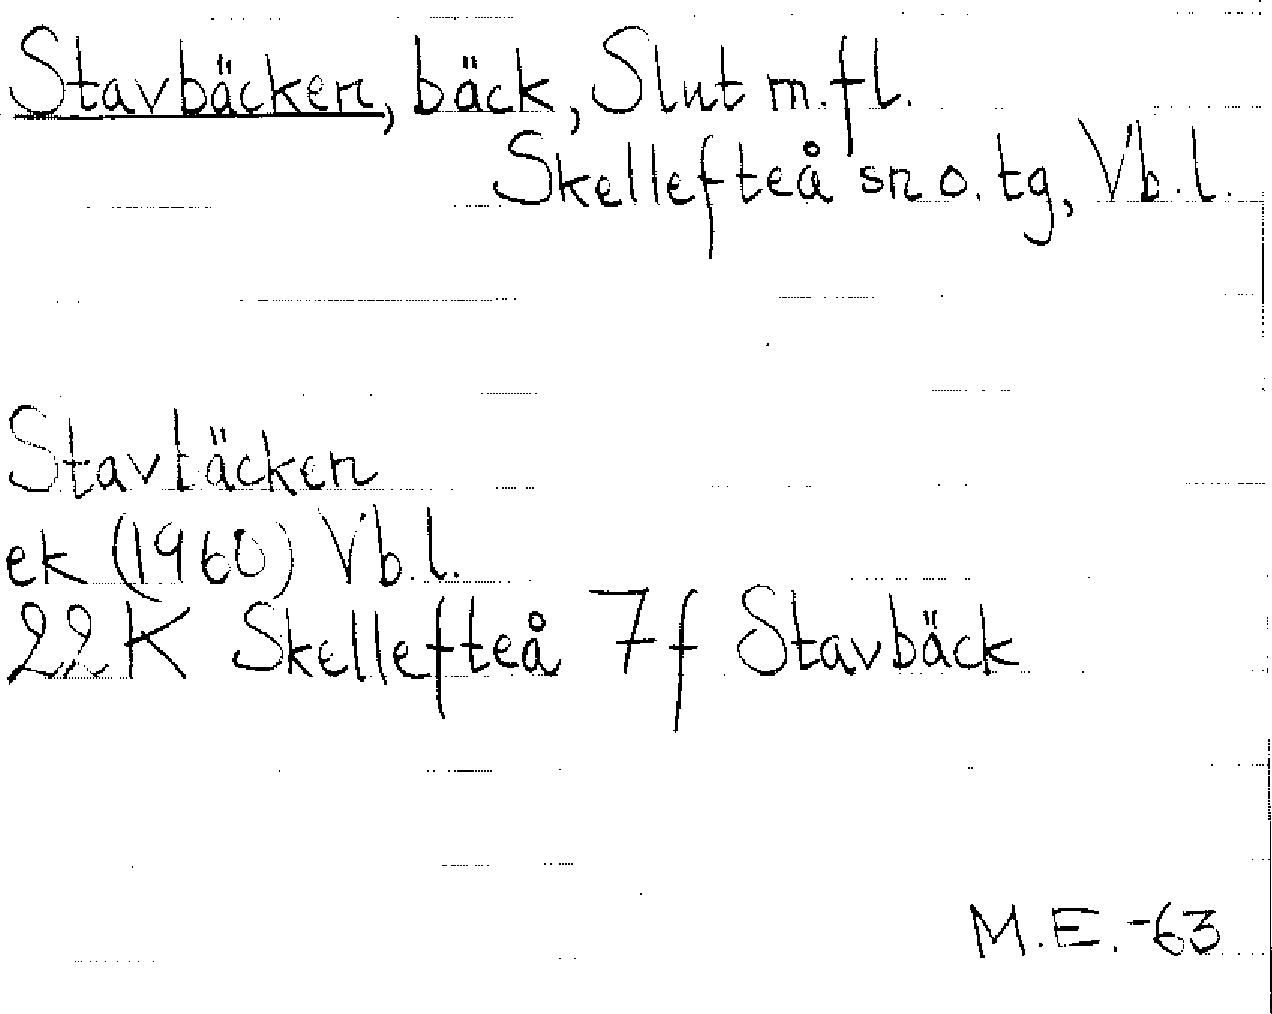 Stavbäcken, bäck, Slut m.fl.
Skellefteå sn o. tg, Vb.l.
Stavbäcken
ek (1960) Vb.l.
22K Skellefteå 7f Stavbäck
M.E.-63